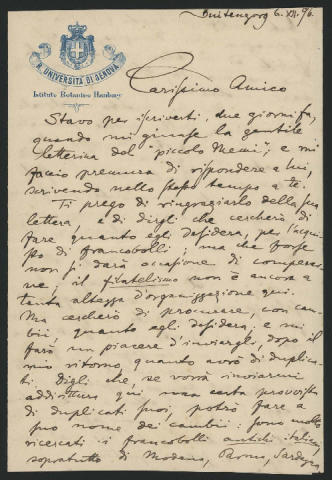 Buitenzorg 6. XII. 96.
R. UNIVERSITÀ DI GENOVA
Istituto Botanico Hanbury
Carissimo Amico
Stavo per iscriverti, due giorni fa,
quando mi giunse la gentile
letterina del "piccolo Memi", e mi
faccio premura di rispondere a lui,
scrivendo nello stesso tempo a te.
Ti prego di ringraziarlo della sua
lettera, e di dirgli che cercherò di
fare quanto egli desidera, per l'acqui-
sto di francobolli, ma che forse
non si darà occasione di comperar-
ne; il filatelismo non è ancora a
tanta altezza d'organizzazione qui.
Ma cercherò di procurare, con cam-
bii, quanto egli desidera, e mi
farà un piacere d'inviargli, dopo il
mio ritorno, quanto avrò di duplica-
ti. Digli che, se vorrà inviarmi
addirittura qui una certa provvista
di duplicati suoi, potrò fare a
suo nome dei cambii: sono molto
ricercati i francobolli antichi italiani,
sopratutto di Modena, Parma, Sardegna,